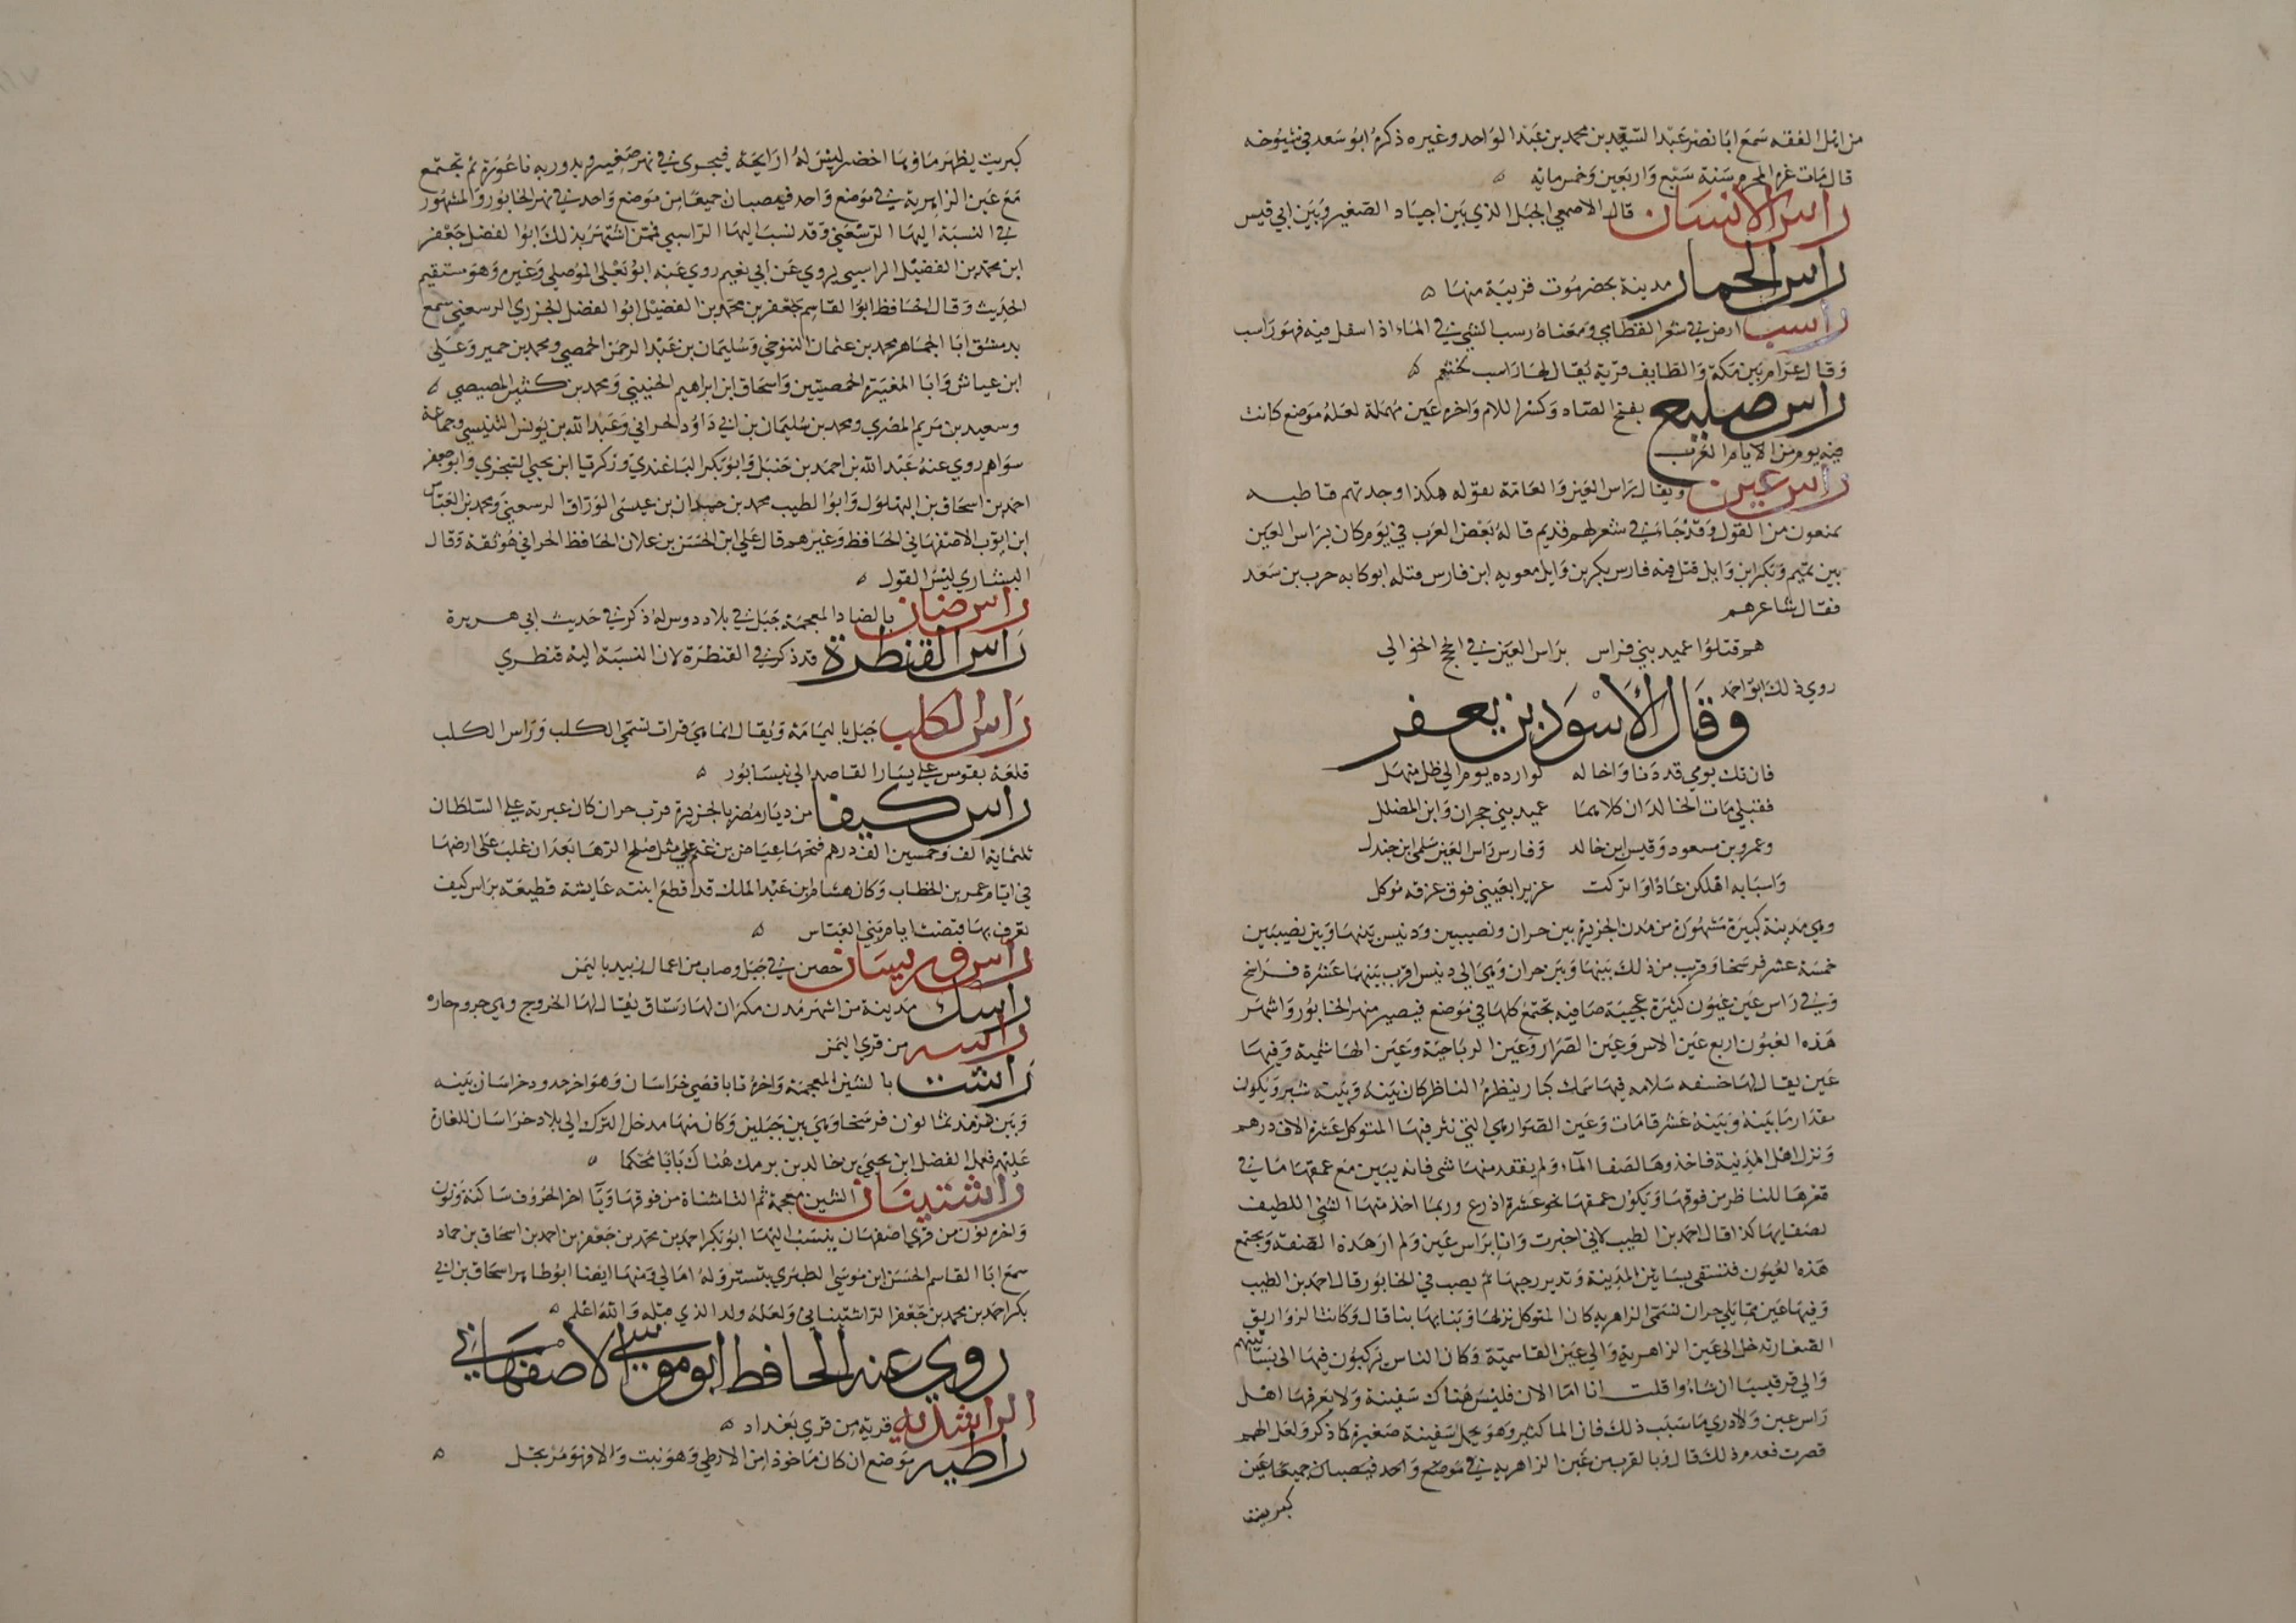 من اهل الفقه سمع ابا نصر عبد السيد بن محمد بن عبد الواحد وغيره ذكره ابو سعد في شيوخه
قال مات غرة المحرم سنة سبع واربعين وخمس مائه
راس الانسان قال الاصمعي الجبل الذي بين اجياد الصغير وبين ابي قبيس
راس الحمار مدينة بحضرموت قريبة منها
راسب ارض في شعر القطامي ومعناه رسب الشي في الماء اذا سفل فيه فهو راسب
وقال عرام بين مكة والطايف قرية يقال لها راسب لخثعم
راس صليع بفتح الصاد وكسر اللام واخره عين مهملة لعله موضع كانت
فيه يوم من الايام العرب
راس عين ويقال راس العين والعامة تقوله هكذا وجدتهم قاطبه
يمنعون من القول وقد جا في شعر لهم قديم قاله بعض العرب في يوم كان براس العين
بين تميم وبكر ابن وايل قتل فيه فارس بكر بن وايل معويه ابن فارس قتله ابو كابه حرب بن سعد
فقال شاعرهم
هم قتلوا عميد بني فراس براس العين في الحج الخوالي
روي ذلك ابو احمد
وقال الأسود بن يعفر
فان تك يومي قد دنا واخاله لوارده يوم الي ظل منهل
فقبلي مات الخالدان كلاهما عميد بني حجران وابن المضلل
وعمرو بن مسعود وقيس ابن خالد وفارس راس العين سلمي ابن جندل
واسبابه اهلكن عادا وانزلت عزيرا بغيبي فوق غرفه موكل
وهي مدينة كبيرة مشهورة من مدن الجزيرة بين حران ونصيبين ودنيس بينها وبين نصيبين
خمسة عشر فرسخا وقرب من ذلك بينها وبين حران وهي الي دنيس اقرب بينهما عشرة فراسخ
وفي راس عين عيون كثيرة عجيبة صافية تجتمع كلها في موضع فيصير منهر الخابور واشهر
هذه العيون اربع عين الاس وعين الصرار وعين الرياحية وعين الهاشمية وفيها
عين يقال لها خسفه سلامه فيها سمك كبار ينظره الناظر كان بينه وبينه شبر ويكون
مقدار ما بينه وبينه عشر قامات وعين الصرار هي التي نثر فيها المتوكل عشرة الاف درهم
ونزل اهل المدينة فاخذوها لصفا الماء ولم يفقد منها شي فانه يبين مع عمقها ما في
قعرها للناظر من فوقها ويكون عمقها نحو عشرة اذرع وربما اخذ منها الشي اللطيف
لصفايها كذا قال احمد بن الطيب لاني اخبرت وانا براس عين ولم ار هذه الصفة وبجتمع
هذه العيون فتسقي بساتين المدينة وتدير رحيها ثم يصب في الخابور قال احمد بن الطيب
وفيها عين مما يلي حران تسمي الزاهريه كان المتوكل نزلها وبنا بها بنا قال وكانت الزواريق
الصغار تدخل الي عين الزاهرية والي عين القاسمية وكان الناس يركبون فيها الي بساتينهم
والي قرقيسيا ان شاءوا قلت انا اما الان فليس هناك سفينة ولا يعرفها اهل
راس عين ولا ادري ما سبب ذلك فان الما كثير وهو يحمل سفينة صغيرة كما ذكر ولعل الهمم
قصرت فعدم ذلك قال وبالقرب من عين الزاهريه في موضع واحد فيصبان جميعا عين
كبريت
كبريت يظهر ماوها اخضر ليس له رايحة فيجري في نهر صغير ويدور به ناعورة ثم تجتمع
مع عين الزاهرية في موضع واحد فيصبان جميعا من موضع واحد في نهر الخابور والمشهور
في النسبة اليها الرسعني وقد نسب اليها الراسبي فمن اشتهر بذلك ابو الفضل جعفر
ابن محمد بن الفضيل الراسبي يروي عن ابي نعيم روي عنه ابو يعلي الموصلي وغيره وهو مستقيم
الحديث وقال الحافظ ابو القاسم جعفر بن محمد بن الفضيل ابو الفضل الجزري الرسعني سمع
بدمشق ابا الجماهر محمد بن عثمان التنوخي وسليمان بن عبد الرحمن الحمصي ومحمد بن حمير وعلي
ابن عياش وابا المغيرة الحمصيين واسحاق ابن ابراهيم الحنيني ومحمد بن كثير المصيصي
وسعيد بن مريم المصري ومحمد بن سليمان بن ابي داود الحراني وعبد الله بن يونس التنيسي وجماعة
سواهم روي عنه عبد الله بن احمد بن حنبل وابو بكر الباغندي وزكريا ابن يحيي السجزي وابو جعفر
احمد بن اسحاق بن البهلول وابو الطيب محمد بن حمدان بن عيسي الوراق الرسعني ومحمد بن العباس
ابن ايوب الاصفهاني الحافظ وغيرهم قال علي ابن الحسن بن علان الحافظ الحراني هو ثقة وقال
البشاري ليس القول
راس ضنان بالضاد المعجمة جبل في بلاد دوس له ذكر في حديث ابي هريرة
راس القنطرة قد ذكر في القنطرة لان النسبة اليه قنطري
راس الكلب جبل باليمامة ويقال انما هي قرات تسمي الكلب وراس الكلب
قلعة بقومس علي يسار القاصد الي نيسابور
راس كيفا من ديار مضر بالجزيرة قرب حران كان عبرته علي السلطان
ثلثماية الف وخمسين الف درهم فتحها عياض بن غنم علي مثل صلح الرها بعد ان غلب علي ارضها
في ايام عمر بن الخطاب وكان هشام بن عبد الملك قد اقطع ابنته عايشة قطيعة براس كيف
تعرف بها قبضت ايام بني العباس
راس حصن في جبل وصاب من اعمال زبيد باليمن
راسك مدينة من اشهر مدن مكران لها رستاق يقال لها الخروج وهي جروم حاره
راسه من قري اليمن
راشت بالشين المعجمة واخره تا باقصي خراسان وهو اخر حدود خراسان بينه
وبين ترمذ ثمانون فرسخا وهي بين جبلين وكان منها مدخل الترك الي بلاد خراسان للغارة
عليهم فعمل الفضل ابن يحيي بن خالد بن برمك هناك بابا محكما
راشتينان الشين معجمة ثم التا مثناة من فوقها ويا اخر الحروف ساكنة ونون
واخره نون من قري اصفهان ينسب اليها ابو بكر احمد بن محمد بن جعفر بن احمد بن اسحاق بن حماد
سمع ابا القاسم الحسن ابن موسي الطبري بتستر وله امالي ومنها ايضا ابو طاهر اسحاق بن ابي
بكر احمد بن محمد بن جعفر الراشتيناني ولعله ولد الذي قبله والله اعلم
روي عنه الحافظ ابو موسي الاصفهاني
الراشديه قرية من قري بغداد
راطيه موضع ان كان ماخوذ من الارطي وهو نبت والا فهو مرتجل